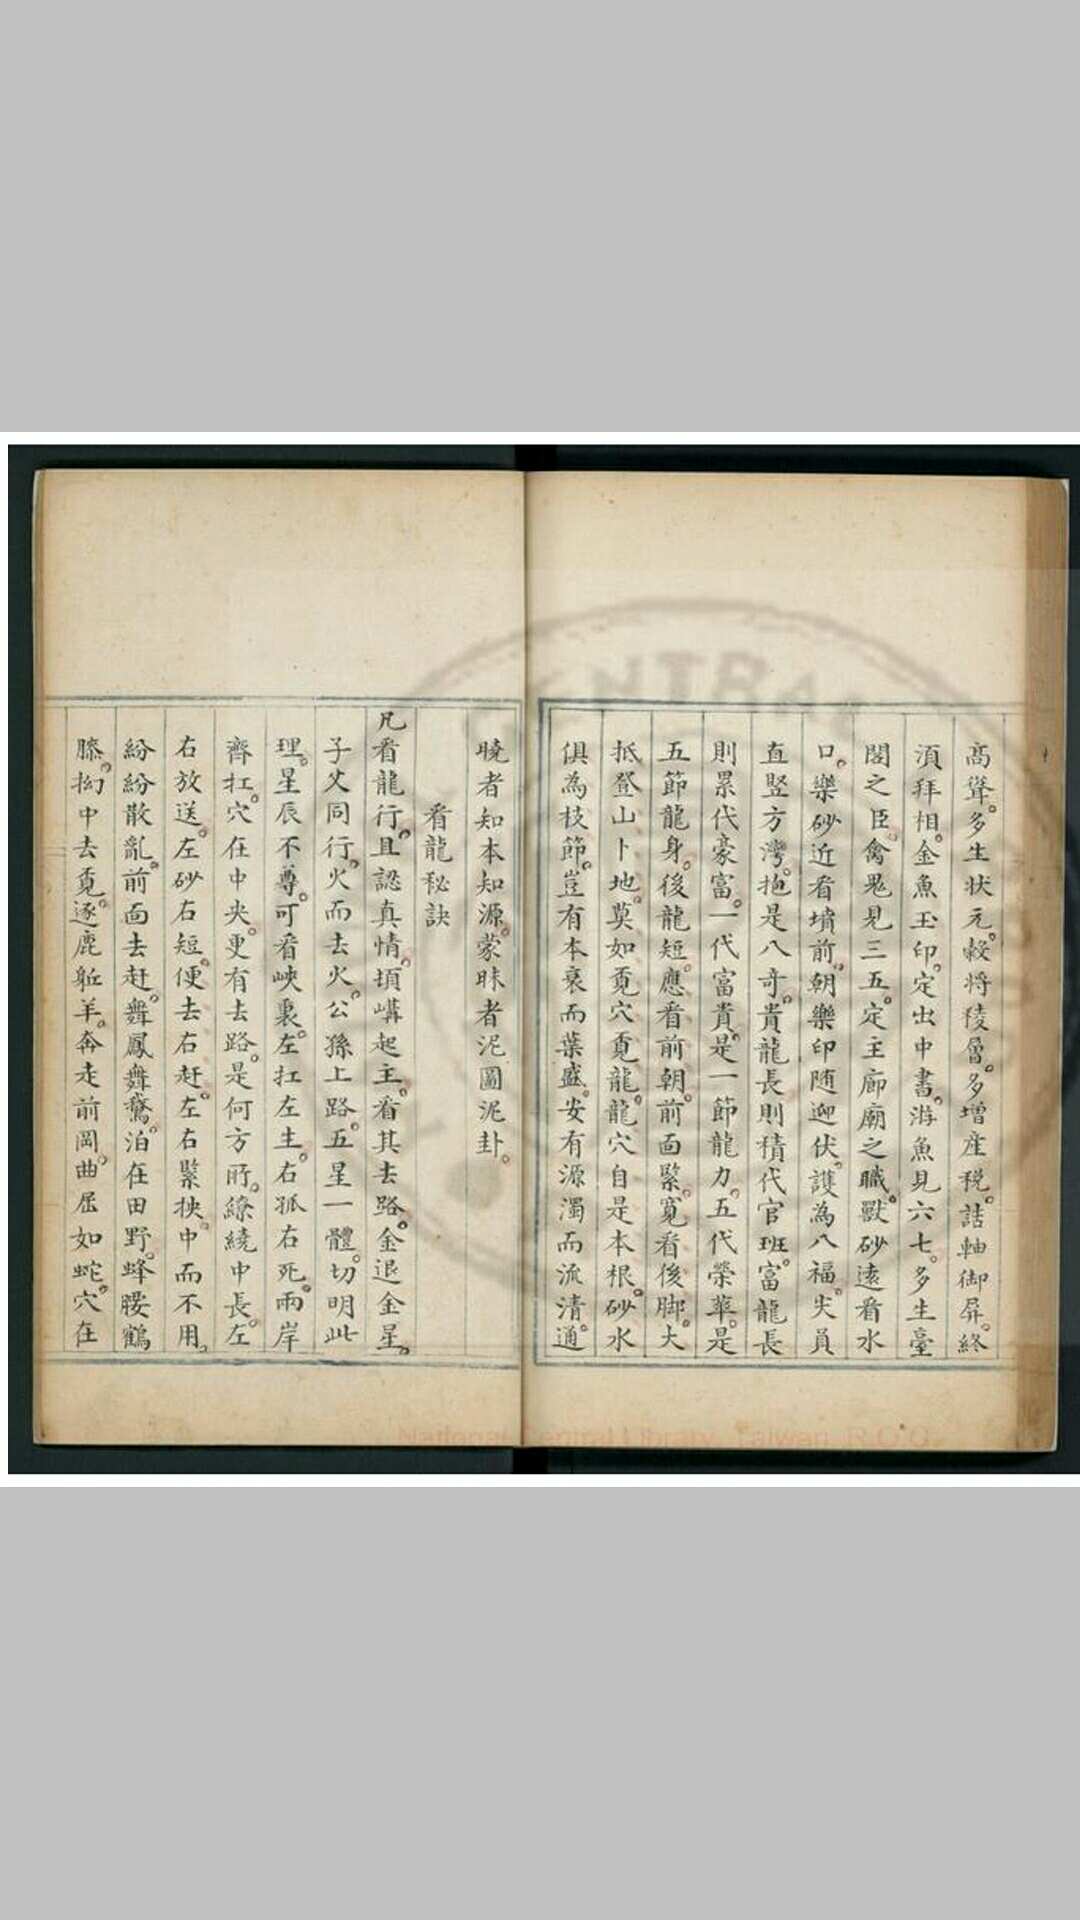 高聳。多生狀元。毅將陵層。多增産税。誥軸御屏。終
湏拜相。金魚玉印。定出中書。游魚見六七。多生臺
閣之臣。禽鬼見三五。定主廊廟之職。獸砂遠看水
口。樂砂近看墳前。朝樂印随迎伏。護為八福。尖員
直竪方灣。抱是八竒。貴龍長則積代官班。富龍長
則累代豪富。一代富貴。是一節龍力。五代榮華。是
五節龍身。後龍短。應看前朝。前面緊。寬看後脚。大
抵登山卜地。莫如覔穴覔龍。龍穴自是本根。砂水
俱為枝節。豈有本衰而葉盛。安有源濁而流清。通
曉者知本知源。蒙昧者泥圖泥卦。
看龍秘訣
凡看龍行。且認真情。頂𡶶起主。看其去路。金退金星。
子父同行。火而去火。公孫上路。五星一體。切明此
理。星辰不尊。可看峽裏。左扛左生。右孤右死。兩岸
齊扛。穴在中央。更有去路。是何方所。繚繞中長。左
右放送。左砂右短。便去右赶。左右緊抰。中而不用。
紛紛散亂。前面去赶。舞鳳舞鶩。泊在田野。蜂腰鶴
膝。拗中去覔。逐鹿䠶羊。奔走前岡。曲屈如蛇。穴在
National Central Library, Taiwan, R.O.C.